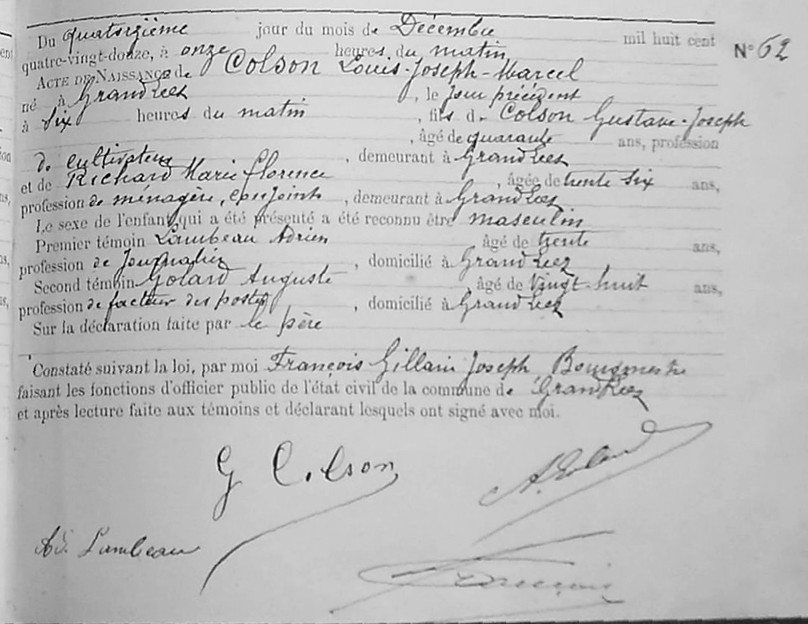 Du quatorzième jour du mois de Décembre mil huit cent
quatre-vingt-douze, à onze heures du matin N° 62
ACTE DE NAISSANCE de Colson Louis-Joseph-Marcel
né à Grand Leez, le jour précédent
à six heures du matin, fils de Colson Gustave-Joseph
, âgé de quarante ans, profession
de cultivateur, demeurant à Grand Leez
et de Richard Marie Florence, âgée de trente six ans,
profession de ménagère, conjoints, demeurant à Grand Leez
Le sexe de l'enfant qui a été présenté a été reconnu être masculin
Premier témoin Lambeau Adrien âgé de trente ans,
profession de journalier, domicilié à Grand Leez
Second témoin Golard Auguste, âgé de vingt-huit ans,
profession de facteur des postes, domicilié à Grand Leez
Sur la déclaration faite par le père
Constaté suivant la loi, par moi François Gillain Joseph Bourgmestre
faisant les fonctions d'officier public de l'état civil de la commune de Grand Leez
et après lecture faite aux témoins et déclarant lesquels ont signé avec moi.
G Colson
A. Golard
Ad. Lambeau
François